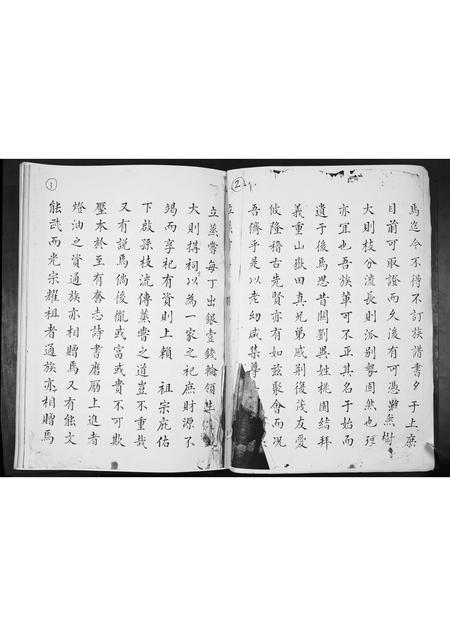 ②
馬迄今不得不訂族譜書夕于上庶
目前可取證而久後有可憑雖然樹
大則枝分流長則派別勢固然也理
亦宜也吾族軰可不正其名于始而
遺于後馬思昔關劉與姓桃園結拜
義重山嶽田真兄弟感荆後茂友愛
攸隆稽古先賢亦有如茲聚會而况
吾儕乎是以老幼咸集尊
③
立蒸嘗每丁出銀壹錢輪領生
大則搆祠以為一家之祀庶財源不
竭而享祀有資則上賴 祖宗庇佑
下啟孫枝流傳蒸嘗之道豈不重哉
又有說馬倘後儱或富或貴不可欺
壓本於至有奮志詩書磨礪上進者
燈油之資通族亦相贈馬又有能文
能武而光宗耀祖者通族亦相贈馬